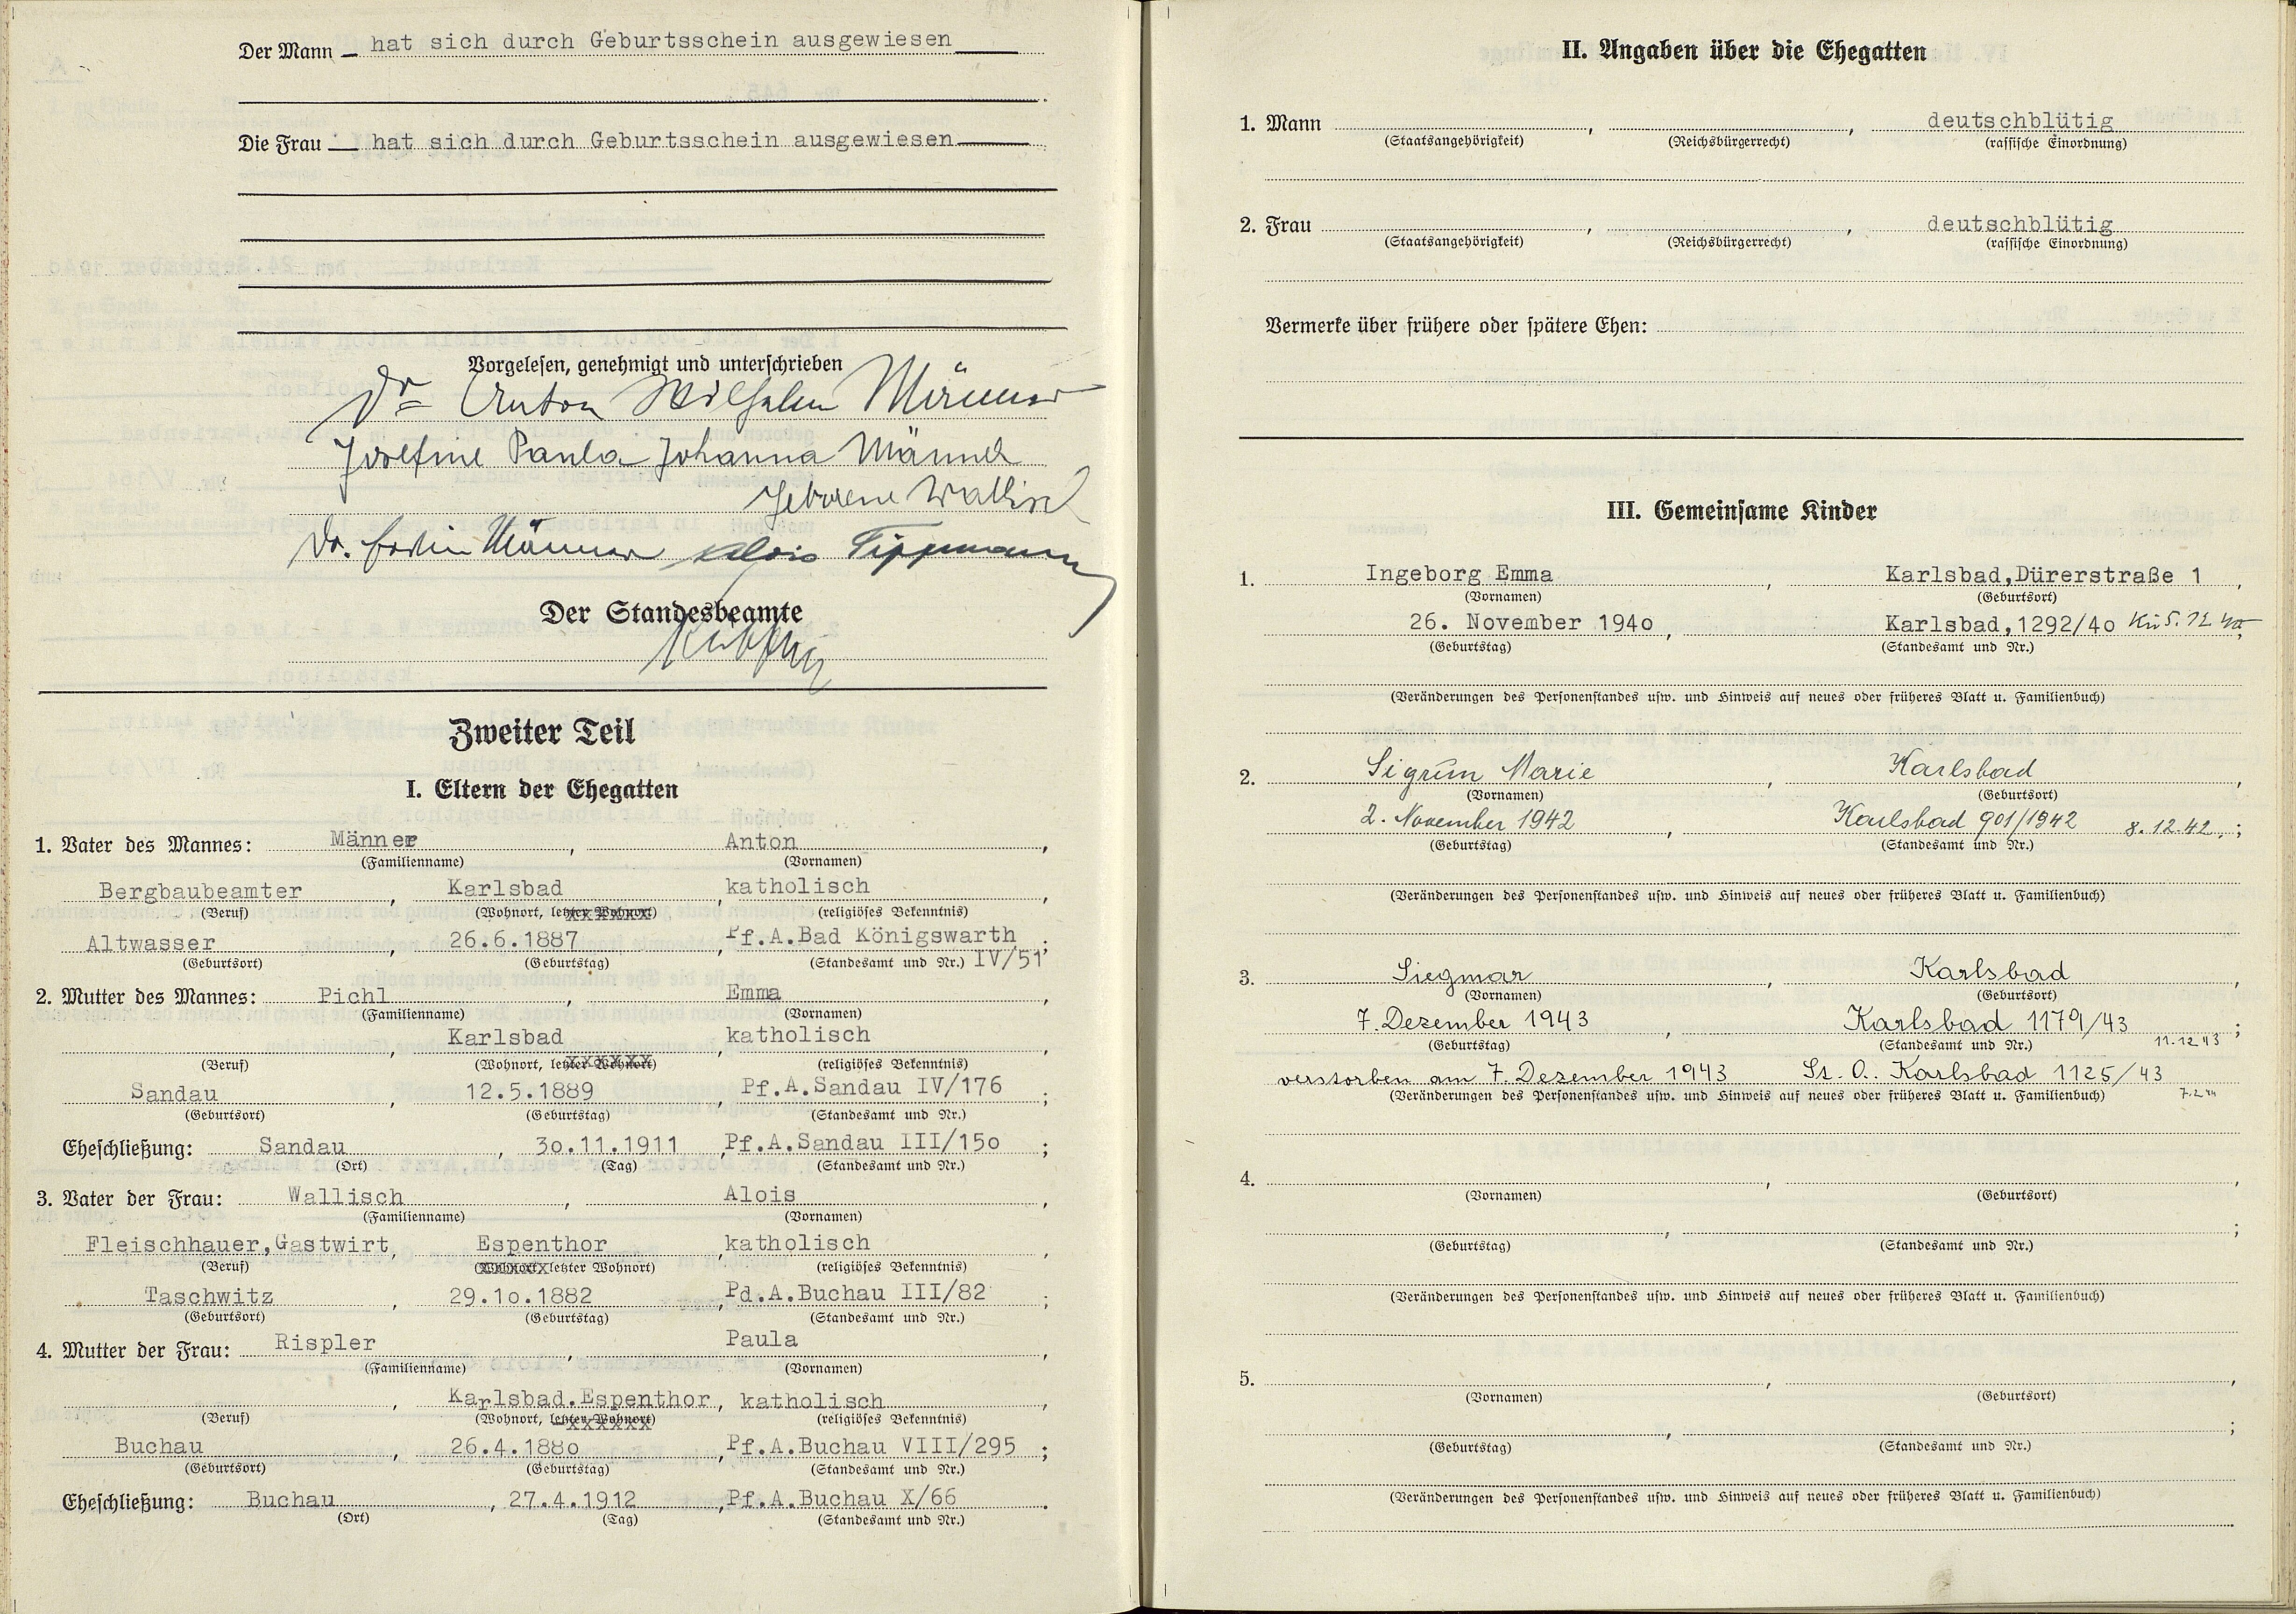 Der Mann — hat sich durch Geburtsschein ausgewiesen
Die Frau — hat sich durch Geburtsschein ausgewiesen
Vorgelesen, genehmigt und unterschrieben
Dr Anton Wilhelm Männer
Josefine Paula Johanna Männer
geborene Wallisch
Dr. Männer Alois Tippmann
Der Standesbeamte
Zweiter Teil
I. Eltern der Ehegatten
1. Vater des Mannes: Männer, Anton,
(Familienname) (Vornamen)
Bergbaubeamter, Karlsbad, katholisch,
(Beruf) (Wohnort, letzter Wohnort) (religiöses Bekenntnis)
Altwasser, 26.6.1887, Pf.A.Bad Königswarth;
(Geburtsort) (Geburtstag) (Standesamt und Nr.) IV/51
2. Mutter des Mannes: Pichl, Emma,
(Familienname) (Vornamen)
Karlsbad, katholisch,
(Beruf) (Wohnort, letzter Wohnort) (religiöses Bekenntnis)
Sandau, 12.5.1889, Pf.A.Sandau IV/176;
(Geburtsort) (Geburtstag) (Standesamt und Nr.)
Eheschließung: Sandau, 30.11.1911, Pf.A.Sandau III/150;
(Ort) (Tag) (Standesamt und Nr.)
3. Vater der Frau: Wallisch, Alois,
(Familienname) (Vornamen)
Fleischhauer,Gastwirt, Espenthor, katholisch,
(Beruf) (Wohnort, letzter Wohnort) (religiöses Bekenntnis)
Taschwitz, 29.10.1882, Pd.A.Buchau III/82;
(Geburtsort) (Geburtstag) (Standesamt und Nr.)
4. Mutter der Frau: Rispler, Paula,
(Familienname) (Vornamen)
Karlsbad.Espenthor, katholisch,
(Beruf) (Wohnort, letzter Wohnort) (religiöses Bekenntnis)
Buchau, 26.4.1880, Pf.A.Buchau VIII/295;
(Geburtsort) (Geburtstag) (Standesamt und Nr.)
Eheschließung: Buchau, 27.4.1912, Pf.A.Buchau X/66.
(Ort) (Tag) (Standesamt und Nr.)
II. Angaben über die Ehegatten
1. Mann , , deutschblütig
(Staatsangehörigkeit) (Reichsbürgerrecht) (rassische Einordnung)
2. Frau , , deutschblütig
(Staatsangehörigkeit) (Reichsbürgerrecht) (rassische Einordnung)
Vermerke über frühere oder spätere Ehen:
III. Gemeinsame Kinder
1. Ingeborg Emma, Karlsbad,Dürerstraße 1,
(Vornamen) (Geburtsort)
26. November 1940, Karlsbad,1292/40 5.12.40;
(Geburtstag) (Standesamt und Nr.)
(Veränderungen des Personenstandes usw. und Hinweis auf neues oder früheres Blatt u. Familienbuch)
2. Sigrun Marie, Karlsbad,
(Vornamen) (Geburtsort)
2. November 1942, Karlsbad 901/1942 8.12.42.;
(Geburtstag) (Standesamt und Nr.)
(Veränderungen des Personenstandes usw. und Hinweis auf neues oder früheres Blatt u. Familienbuch)
3. Siegmar, Karlsbad,
(Vornamen) (Geburtsort)
7. Dezember 1943, Karlsbad 1179/43;
(Geburtstag) (Standesamt und Nr.) 11.12.43
verstorben am 7. Dezember 1943 St. A. Karlsbad 1125/43
(Veränderungen des Personenstandes usw. und Hinweis auf neues oder früheres Blatt u. Familienbuch) 7.2.44
4. , ,
(Vornamen) (Geburtsort)
, ;
(Geburtstag) (Standesamt und Nr.)
(Veränderungen des Personenstandes usw. und Hinweis auf neues oder früheres Blatt u. Familienbuch)
5. , ,
(Vornamen) (Geburtsort)
, ;
(Geburtstag) (Standesamt und Nr.)
(Veränderungen des Personenstandes usw. und Hinweis auf neues oder früheres Blatt u. Familienbuch)